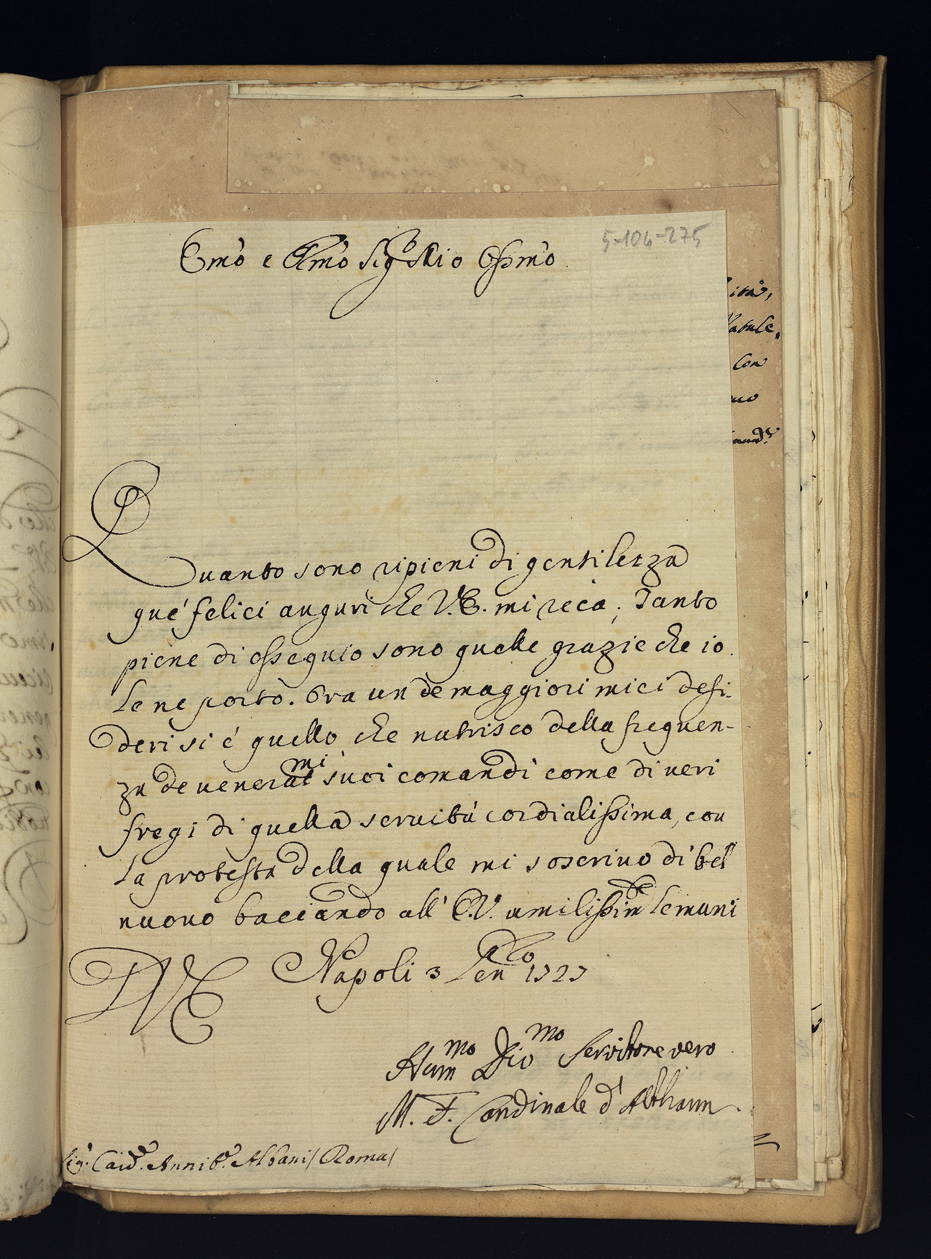 5-104-275
Emo e Rmo Sigr Mio Ossmo
Quanto sono ripieni di gentilezza
que' felici auguri che V.E. mi reca; Tanto
piene di ossequio sono quelle grazie che io
le ne porto. Ora un de maggiori miei desi-
deri si é quello che nutrisco della frequen-
za de venerat
mi
suoi comandi come di veri
fregi di quella servitú cordialissima, con
la protesta della quale mi soscrivo di bel
nuovo bacciando all' E.V. umilissimte le mani
DVE Napoli 3 Gen 1727
Hummo Dio mo Servitore vero
M. F. Cardinale d'Althann
Sig: Card. Annib. Albani / Roma /
con